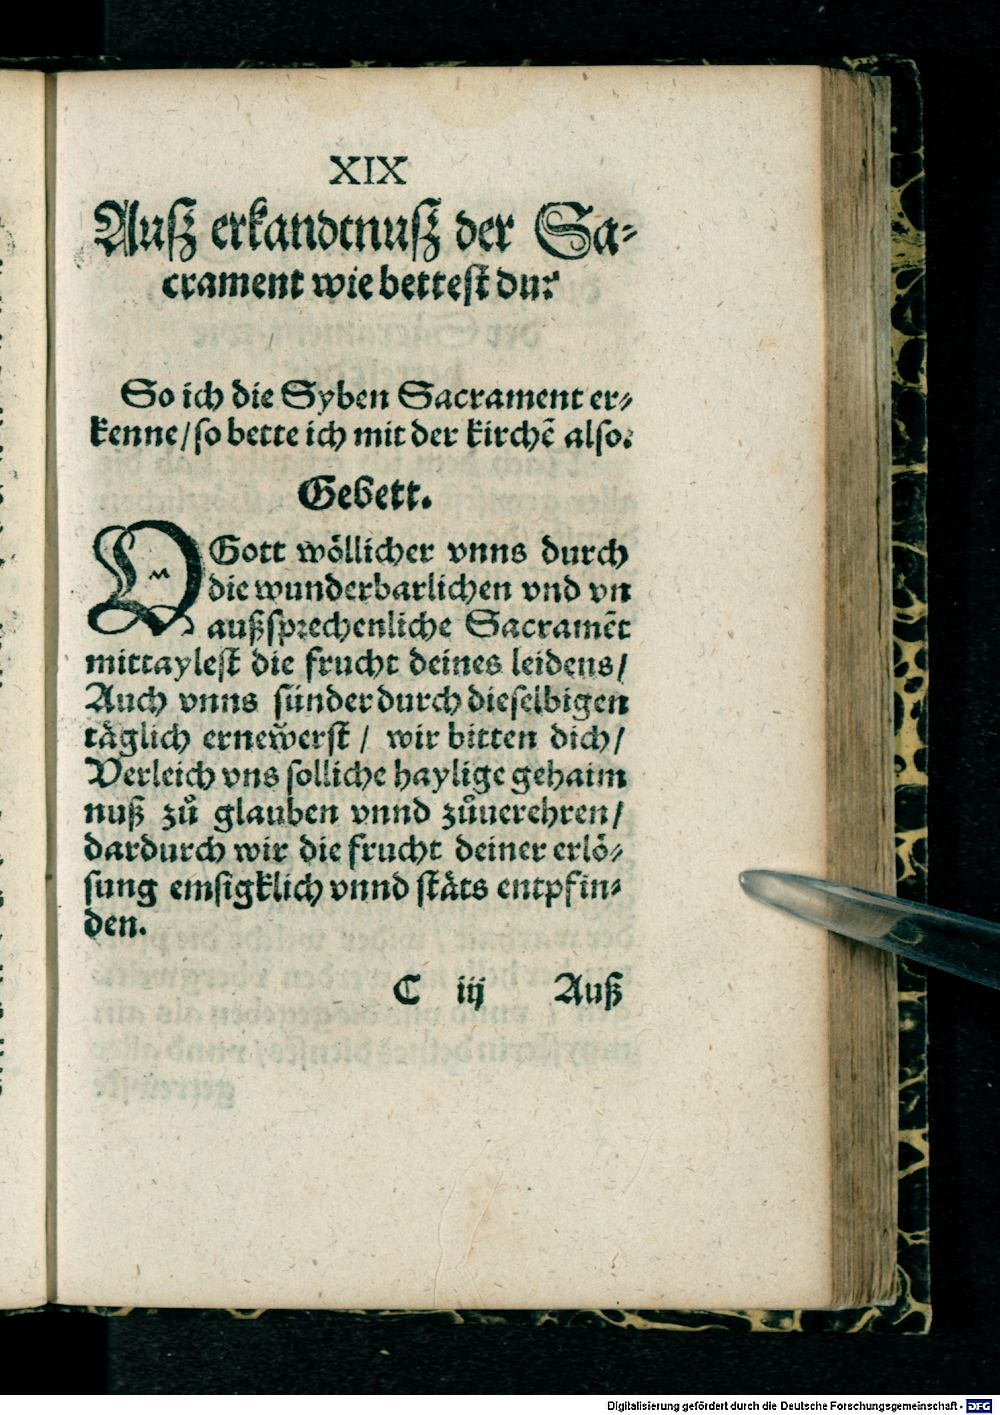 XIX
Auſʒ erkandtnuſʒ der Sa⸗
crament wie betteſt du?
So ich die Syben Sacrament er⸗
kenne/ſo bette ich mit der kirchē alſo.
Gebett.
O Gott wöllicher vnns durch
die wunderbarlichen vnd vn
außſprechenliche Sacramēt
mittayleſt die frucht deines leidens/
Auch vnns sünder durch dieſelbigen
täglich ernew̌erſt / wir bitten dich/
Verleich vns ſolliche haylige gehaim
nuß zů glauben vnnd zůuerehren/
dardurch wir die frucht deiner erlö⸗
ſung emſigklich vnnd ſtäts entpfin⸗
den.
C iij Auß
Digitalisierung gefördert durch die Deutsche Forschungsgemeinschaft - DFG